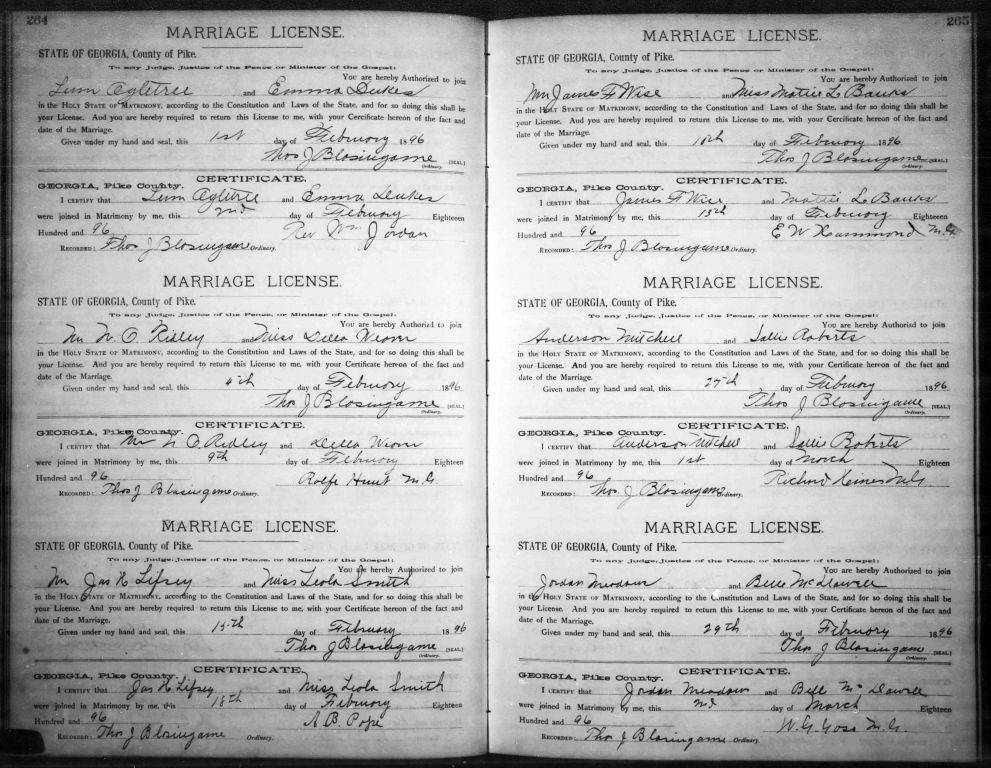 264
MARRIAGE LICENSE.
STATE OF GEORGIA, County of Pike.
To any Judge, Justice of the Peace or Minister of the Gospel:
You are hereby Authorized to join
Lum Ogletree and Emma Dukes
in the HOLY STATE OF MATRIMONY, according to the Constitution and Laws of the State, and for so doing this shall be
your License. And you are hereby required to return this License to me, with your Certificate hereon of the fact and
date of the Marriage.
Given under my hand and seal, this 1st day of February 1896
Thos J Blasingame (SEAL)
Ordinary.
CERTIFICATE.
GEORGIA, Pike County.
I CERTIFY that Lum Ogletree and Emma Dukes
were joined in Matrimony by me, this 2nd day of February Eighteen
Hundred and 96 Rev Wm Jordan
RECORDED: Thos J Blasingame Ordinary.
MARRIAGE LICENSE.
STATE OF GEORGIA, County of Pike.
To any Judge, Justice of the Peace, or Minister of the Gospel:
You are hereby Authorized to join
Mr N. O Ridley and Miss Della
in the HOLY STATE OF MATRIMONY, according to the Constitution and Laws of the State, and for so doing this shall be
your License. And you are hereby required to return this License to me, with your Certificate hereon of the fact and
date of the Marriage.
Given under my hand and seal, this 4th day of February 1896
Thos J Blasingame (SEAL)
Ordinary.
CERTIFICATE.
GEORGIA, Pike County.
I CERTIFY that Mr N. O. Ridley and Della
were joined in Matrimony by me, this 9th day of February Eighteen
Hundred and 96 Rolfe Hunt M.G.
RECORDED: Thos J Blasingame Ordinary.
MARRIAGE LICENSE.
STATE OF GEORGIA, County of Pike.
To any Judge, Justice of the Peace, or Minister of the Gospel:
You are hereby Authorized to join
Mr Jas H Lifsey and Miss Leola Smith
in the HOLY STATE OF MATRIMONY, according to the Constitution and Laws of the State, and for so doing this shall be
your License. And you are hereby required to return this License to me, with your Certificate hereon of the fact and
date of the Marriage.
Given under my hand and seal, this 15th day of February 1896
Thos J Blasingame (SEAL)
Ordinary.
CERTIFICATE.
GEORGIA, Pike County.
I CERTIFY that Jas H Lifsey and Miss Leola Smith
were joined in Matrimony by me, this 18th day of February Eighteen
Hundred and 96 A. B. Pope
RECORDED: Thos J Blasingame Ordinary.
265
MARRIAGE LICENSE.
STATE OF GEORGIA, County of Pike.
To any Judge, Justice of the Peace, or Minister of the Gospel:
You are hereby Authorized to join
Mr James F Wise and Miss Mattie L Banks
in the HOLY STATE OF MATRIMONY, according to the Constitution and Laws of the State, and for so doing this shall be
your License. And you are hereby required to return this License to me, with your Certificate hereon of the fact and
date of the Marriage.
Given under my hand and seal, this 10th day of February 1896
Thos J Blasingame (SEAL)
Ordinary.
CERTIFICATE.
GEORGIA, Pike County.
I CERTIFY that James F Wise and Mattie L Banks
were joined in Matrimony by me, this 13th day of February Eighteen
Hundred and 96 E W Hammond M.G.
RECORDED: Thos J Blasingame Ordinary.
MARRIAGE LICENSE.
STATE OF GEORGIA, County of Pike.
To any Judge, Justice of the Peace, or Minister of the Gospel:
You are hereby Authorized to join
Anderson Mitchell and Sallie Roberts
in the HOLY STATE OF MATRIMONY, according to the Constitution and Laws of the State, and for so doing this shall be
your License. And you are hereby required to return this License to me, with your Certificate hereon of the fact and
date of the Marriage.
Given under my hand and seal, this 27th day of February 1896
Thos J Blasingame (SEAL)
Ordinary.
CERTIFICATE.
GEORGIA, Pike County.
I CERTIFY that Anderson Mitchell and Sallie Roberts
were joined in Matrimony by me, this 1st day of March Eighteen
Hundred and 96 Richard Heines M.G.
RECORDED: Thos. J Blasingame Ordinary.
MARRIAGE LICENSE.
STATE OF GEORGIA, County of Pike.
To any Judge, Justice of the Peace, or Minister of the Gospel:
You are hereby Authorized to join
Jordan Meadows and Belle McDowell
in the HOLY STATE OF MATRIMONY, according to the Constitution and Laws of the State, and for so doing this shall be
your License. And you are hereby required to return this License to me, with your Certificate hereon of the fact and
date of the Marriage.
Given under my hand and seal, this 29th day of February 1896
Thos J Blasingame (SEAL)
Ordinary.
CERTIFICATE.
GEORGIA, Pike County.
I CERTIFY that Jordan Meadows and Bell McDowell
were joined in Matrimony by me, this 2nd day of March Eighteen
Hundred and 96 W. G. Goss M.G.
RECORDED: Thos J Blasingame Ordinary.